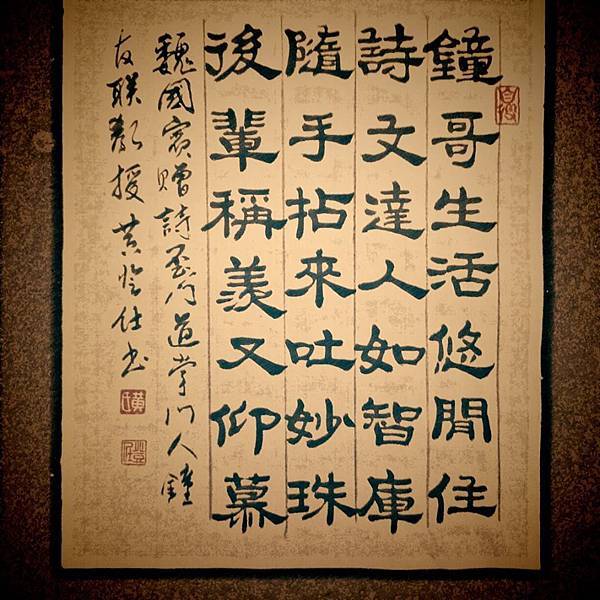 鐘哥生活悠閒住
詩文達人如智庫
隨手拈來吐妙珠
後輩稱羨又仰慕
魏國賓贈詩玉門道掌門人鐘
友聯教授 黃登仕书
黃氏